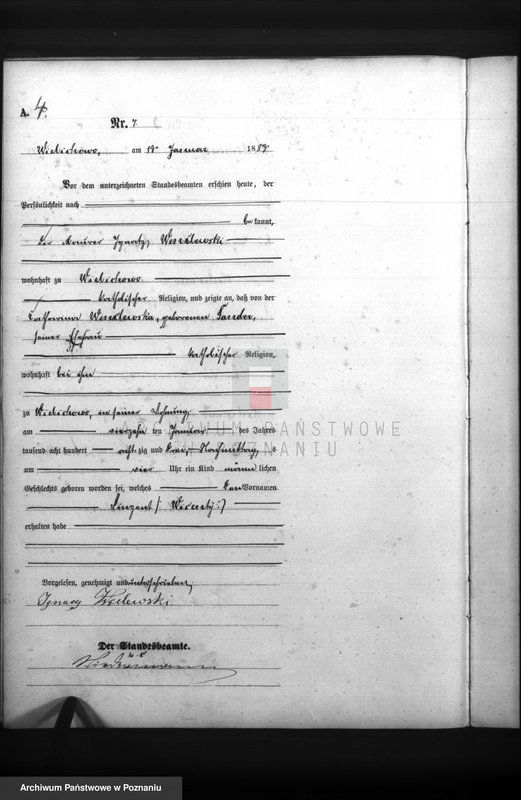 A. 4.
Nr. 7
Wielichowo, am 15 Januar 1883
Vor dem unterzeichneten Standesbeamten erschien heute, der
Persönlichkeit nach
bekannt,
der Maurer Ignatz
wohnhaft zu Wielichowo
katholischer Religion, und zeigte an, daß von der
Katharina geborenen
seiner Ehefrau
katholischer Religion,
wohnhaft bei ihm
zu Wielichowo, in seiner Wohnung
am vierzehn ten Januar des Jahres
tausend acht hundert acht zig und drei, Nachmittags
um vier Uhr ein Kind männlichen
Geschlechts geboren worden sei, welches den Vornamen
Vinzent
erhalten habe
Vorgelesen, genehmigt und unterschrieben,
Ignacy
Der Standesbeamte.
ARCHIWUM PAŃSTWOWE
W POZNANIU
Archiwum Państwowe w Poznaniu